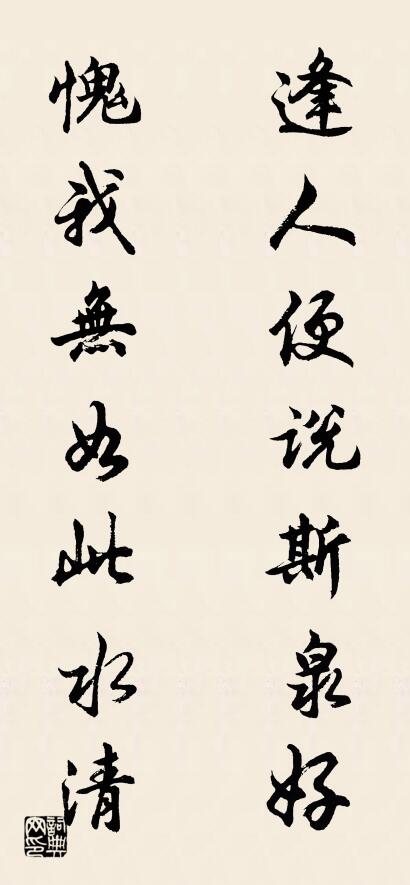 逢人便说斯泉好
愧我無如此水清
詞典網印